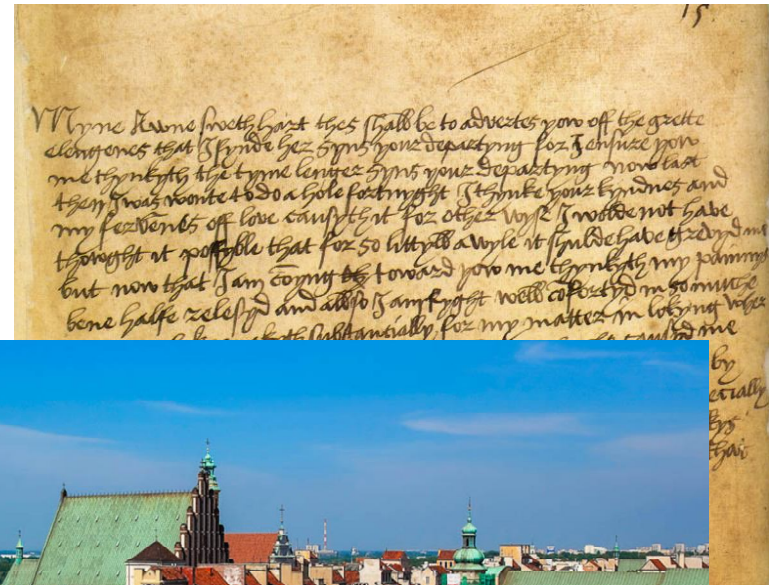 15.
Myne Awne swethhart thes shall be to advertes yow off the grette
elengenes that I fynde her syns your departyng for I ensure yow
me thynkyth the tyme lenger syns your departyng now last
then I was wonte to do a hole fortnyght I thynke your kyndnes and
my fervenes off love causyth it for other wyse I wolde not have
thowght it possyble that for so littyll a wyle it shulde have grevyd me
but now that I am comyng toward yow me thynkyth my painnys
bene halfe relesyd and allso I am ryght well cofortyd in so muche
substantially for my matter in lokyng wher
me
by
ecially
kys